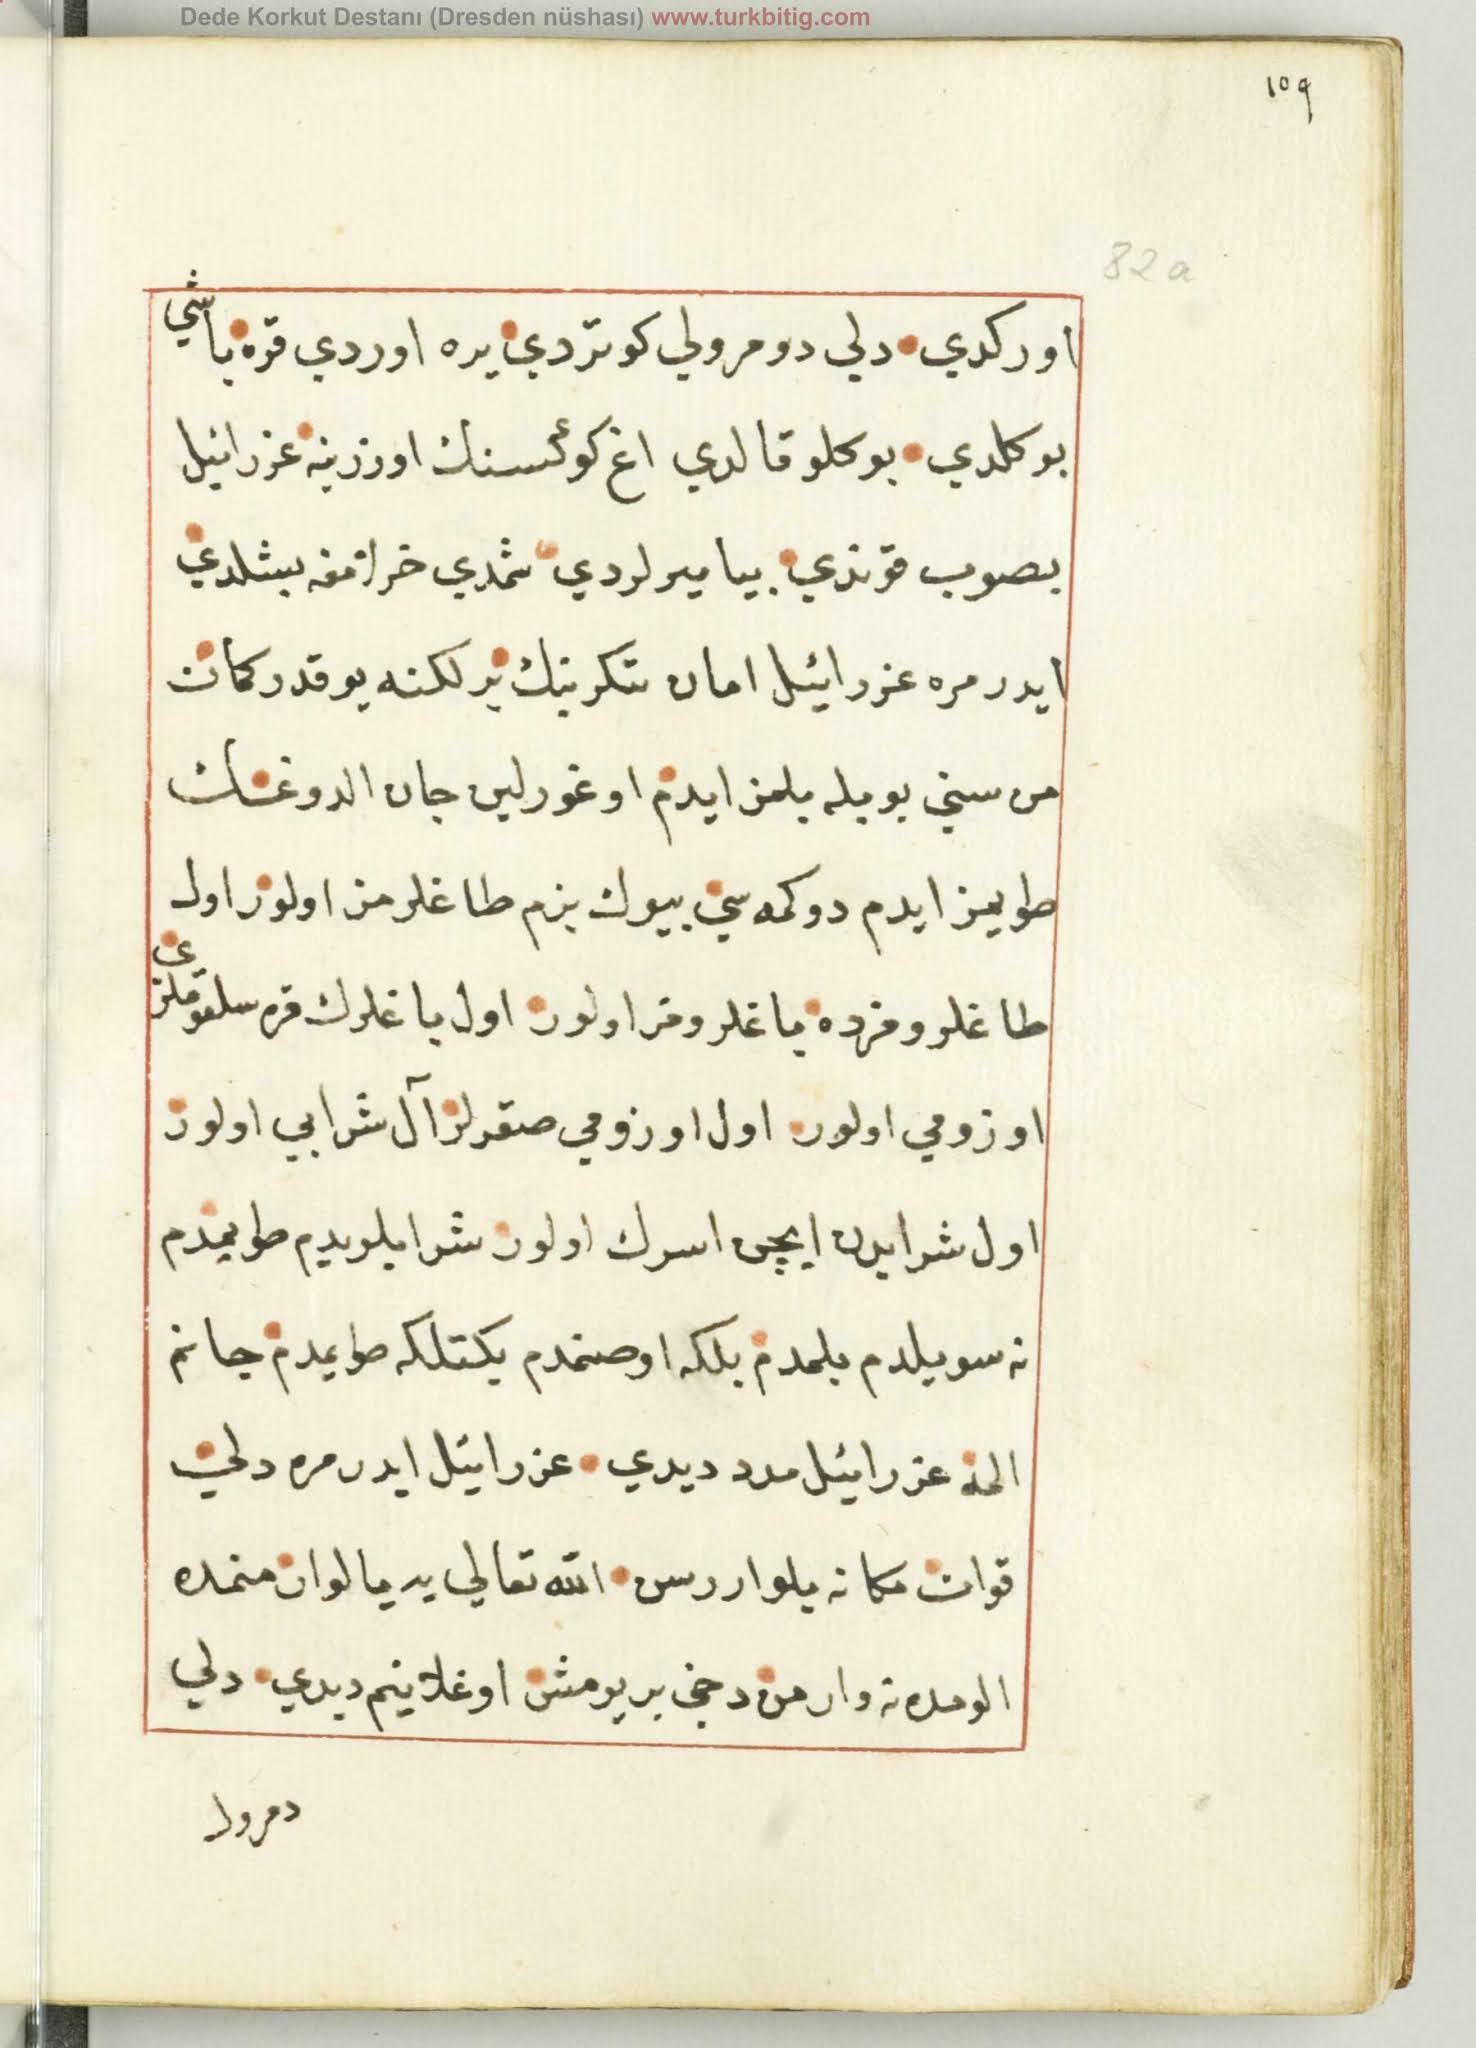 Dede Korkut Destanı (Dresden nüshası) www.turkbitig.com
١٥٩
82a
اوركدي دلي دومرولي كوتردي يره اوردي قره باشي
بوكلدي بوكلو قالدي اغ كوكسنك اوززينه عزرائيل
بصوب قوندي بيا ميرلردي شمدي خرلمغه بشلدي
ايدر مره عزرائيل امان تنكرينك برلكنه يوقدر كمان
من سني بويله بلمز ايدم اوغورلين جان الدوغنك
طويمز ايدم دوكمه سي بيوك بزم طاغلرمز اولور اول
طاغلرومزده باغلرومز اولور اول باغلرك قره سلقوملري
اوزومي اولور اول اوزومي صقرلر آل شرابي اولور
اول شرابدن ايچن اسرك اولور شرابلويدم طويمدم
نه سويلدم بلمدم بلكه اوصنمدم يكتلكه طويمدم جانم
المه عزرائيل مدد ديدي عزرائيل ايدر مره دلي
قوات مكا نه يلوار رسن الله تعالي يه يالوار منمده
الومده نه وار من دخي بر يومش اوغلانيم ديدي دلي
دمرول